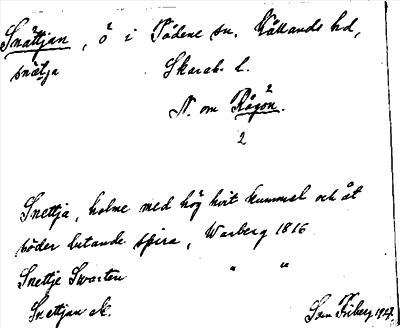 Snättjan, ö i Södene sn. Kållands hd,
snätja Skarab. l.
N. om Rågön.
2
Snettja, holme med hög hvit kummel och åt
söder lutande spira, Warberg 1816
Snettje Swarten " "
Snettjan ek.